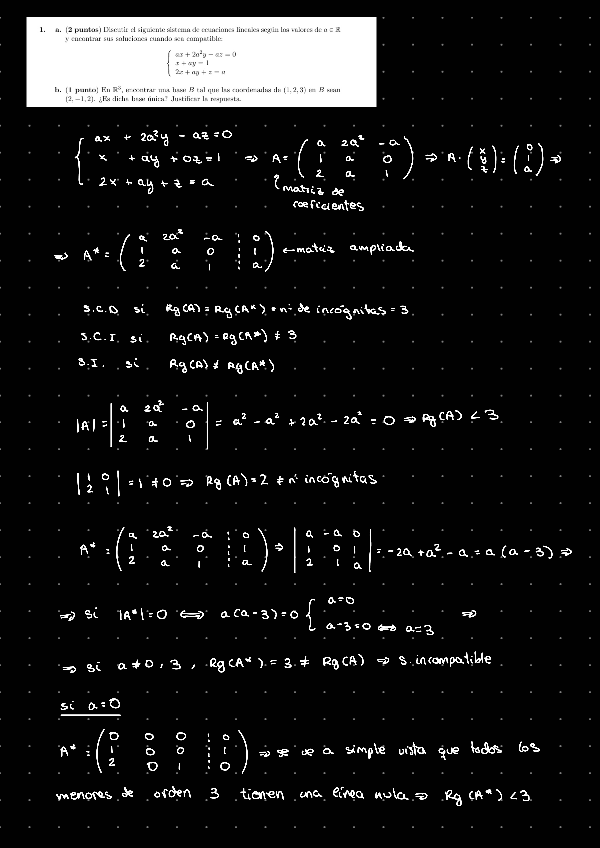 1. a. (2 puntos) Discutir el siguiente sistema de ecuaciones lineales según los valores de a ∈ ℝ
y encontrar sus soluciones cuando sea compatible:
ax + 2a²y − az = 0
x + ay = 1
2x + ay + z = a
b. (1 punto) En ℝ³, encontrar una base B tal que las coordenadas de (1, 2, 3) en B sean
(2, −1, 2). ¿Es dicha base única? Justificar la respuesta.
ax + 2a²y - az = 0
x + ay + 0z = 1 ⇒ A = ( a 2a² -a ; 1 a 0 ; 2 a 1 ) ⇒ A · ( x y z ) = ( 0 1 a ) ⇒
2x + ay + z = a
matriz de
coeficientes
⇒ A* = ( a 2a² -a ¦ 0 ; 1 a 0 ¦ 1 ; 2 a 1 ¦ a ) ← matriz ampliada
S.C.D si Rg(A) = Rg(A*) = nº de incógnitas = 3
S.C.I. si Rg(A) = Rg(A*) ≠ 3
S.I. si Rg(A) ≠ Rg(A*)
|A| = | a 2a² -a ; 1 a 0 ; 2 a 1 | = a² - a² + 2a² - 2a² = 0 ⇒ Rg(A) < 3
| 1 0 ; 2 1 | = 1 ≠ 0 ⇒ Rg(A) = 2 ≠ nº incógnitas
A* = ( a 2a² -a ¦ 0 ; 1 a 0 ¦ 1 ; 2 a 1 ¦ a ) ⇒ | a -a 0 ; 1 0 1 ; 2 1 a | = -2a + a² - a = a(a-3) ⇒
⇒ si |A*| = 0 ⇔ a(a-3) = 0 { a=0 ; a-3=0 ⇔ a=3 ⇒
⇒ si a ≠ 0, 3, Rg(A*) = 3 ≠ Rg(A) ⇒ S. incompatible
si a=0
A* = ( 0 0 0 ¦ 0 ; 1 0 0 ¦ 1 ; 2 0 1 ¦ 0 ) ⇒ se ve a simple vista que todos los
menores de orden 3 tienen una línea nula ⇒ Rg(A*) < 3